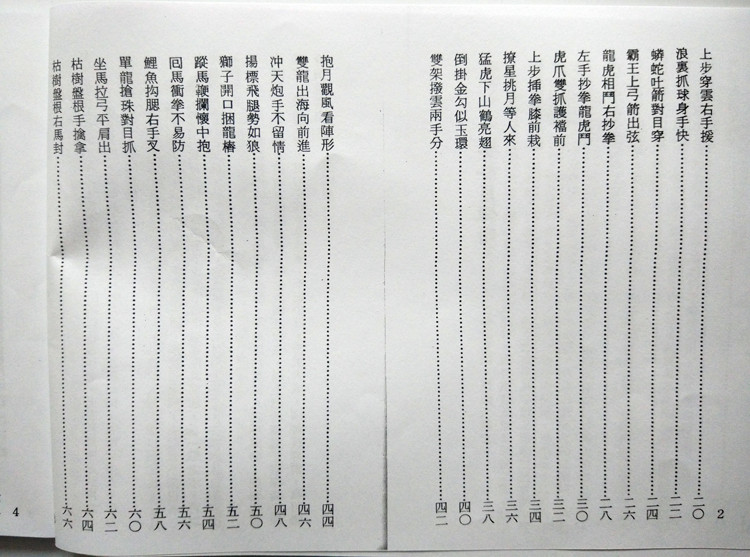 上步穿雲右手援………二〇
浪裏抓球身手快………二二
蟒蛇吐箭對目穿………二四
霸王上弓箭出弦………二六
龍虎相鬥右抄拳………二八
左手抄拳龍虎鬥………三〇
虎爪雙抓護襠前………三二
上步插拳膝前栽………三四
撩星挑月等人來………三六
猛虎下山鶴亮翅………三八
倒掛金勾似玉環………四〇
雙架撥雲兩手分………四二
2
抱月觀風看陣形………四四
雙龍出海向前進………四六
冲天炮手不留情………四八
揚標飛腿勢如狼………五〇
獅子開口捆龍樁………五二
蹤馬鞭攔懷中抱………五四
囘馬衝拳不易防………五六
鯉魚沟腮右手叉………五八
單龍搶珠對目抓………六〇
坐馬拉弓平肩出………六二
枯樹盤根手擒拿………六四
枯樹盤根右馬封………六六
4